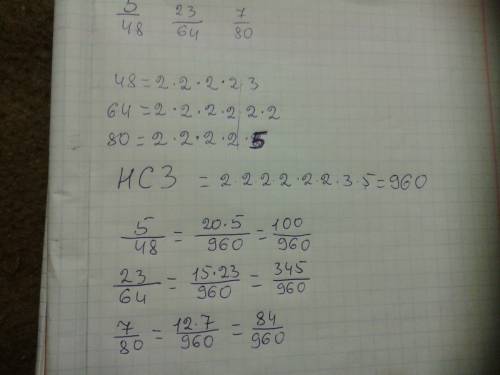 5/48 23/64 7/80
48 = 2·2·2·2·3
64 = 2·2·2·2·2·2
80 = 2·2·2·2·5
НСЗ = 2·2·2·2·2·2·3·5=960
5/48 = 20·5/960 = 100/960
23/64 = 15·23/960 = 345/960
7/80 = 12·7/960 = 84/960